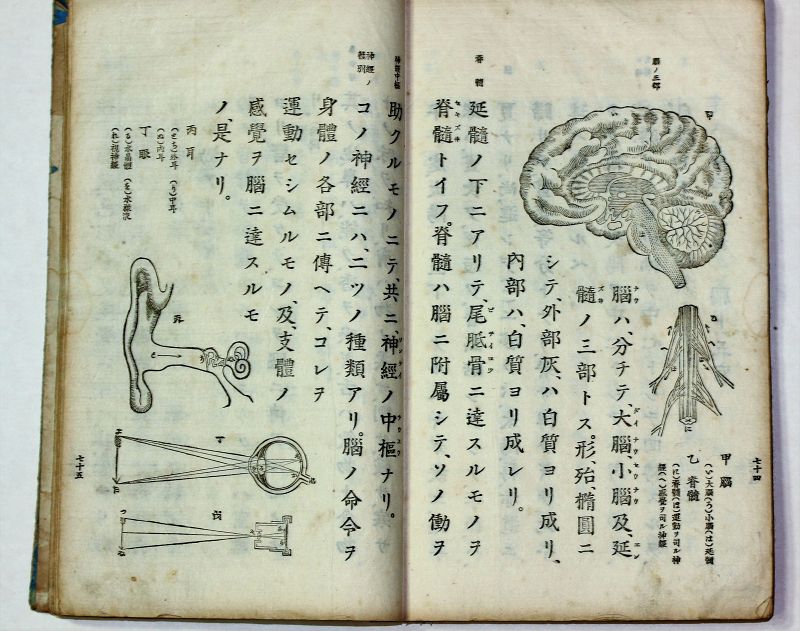 七十四
甲 腦
(い)大腦(ろ)小腦(は)延髓
乙 脊髓
(に)脊髓(ほ)運動ヲ司ル神
經(へ)感覺ヲ司ル神經
腦ノ三部
腦ハ、分チテ、大腦、小腦及、延
髓ノ三部トス。形、殆、橢圓ニ
シテ、外部灰、ハ白質ヨリ成リ、
內部ハ、白質ヨリ成レリ。
脊髓
延髓ノ下ニアリテ、尾骶骨ニ達スルモノヲ
脊髓トイフ。脊髓ハ腦ニ附屬シテ、ソノ働ヲ
神經中樞
助クルモノニテ、共ニ、神經ノ中樞ナリ。
神經ノ
種別
コノ神經ニハ、二ツノ種類アリ。腦ノ命令ヲ
身體ノ各部ニ傳ヘテ、コレヲ
運動セシムルモノ、及、支體ノ
感覺ヲ腦ニ達スルモ
ノ、是ナリ。
丙 耳
(り)中耳
(ぬ)內耳
丁 眼
(る)水晶體
(れ)視神經
七十五